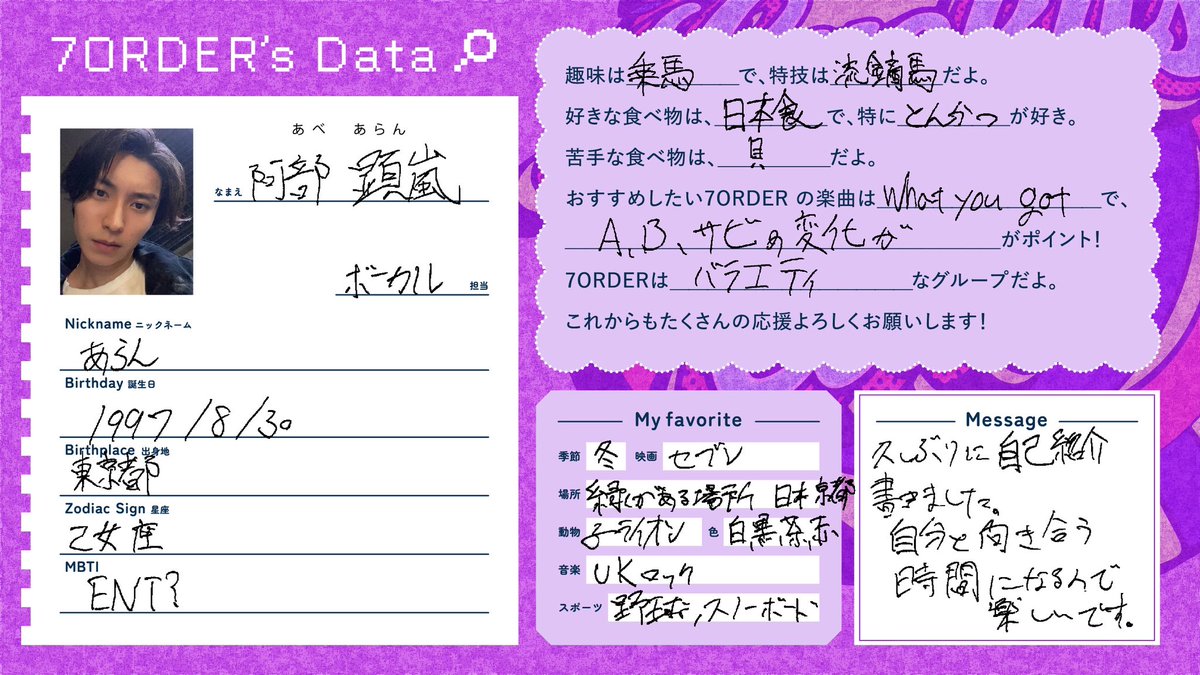 7ORDER's Data
あべ あらん
なまえ 阿部 顕嵐
ボーカル 担当
Nickname ニックネーム
あらん
Birthday 誕生日
1997/8/30
Birthplace 出身地
東京都
Zodiac Sign 星座
乙女座
MBTI
ENT?
趣味は乗馬で、特技は流鏑馬だよ。
好きな食べ物は、日本食で、特にとんかつが好き。
苦手な食べ物は、貝だよ。
おすすめしたい7ORDER の楽曲はWhat you gotで、
A、B、サビの変化がガポイント!
7ORDERはバラエティなグループだよ。
これからもたくさんの応援よろしくお願いします!
My favorite
季節 冬 映画 セブレ
場所 緑がある場所 日本 京都
動物 子ライオン 色 白黒茶赤
音楽 UKロック
スポーツ 野球、スノーボード
Message
久しぶりに自己紹介
書きました。
自分と向き合う
時間になるんで
楽しいです。